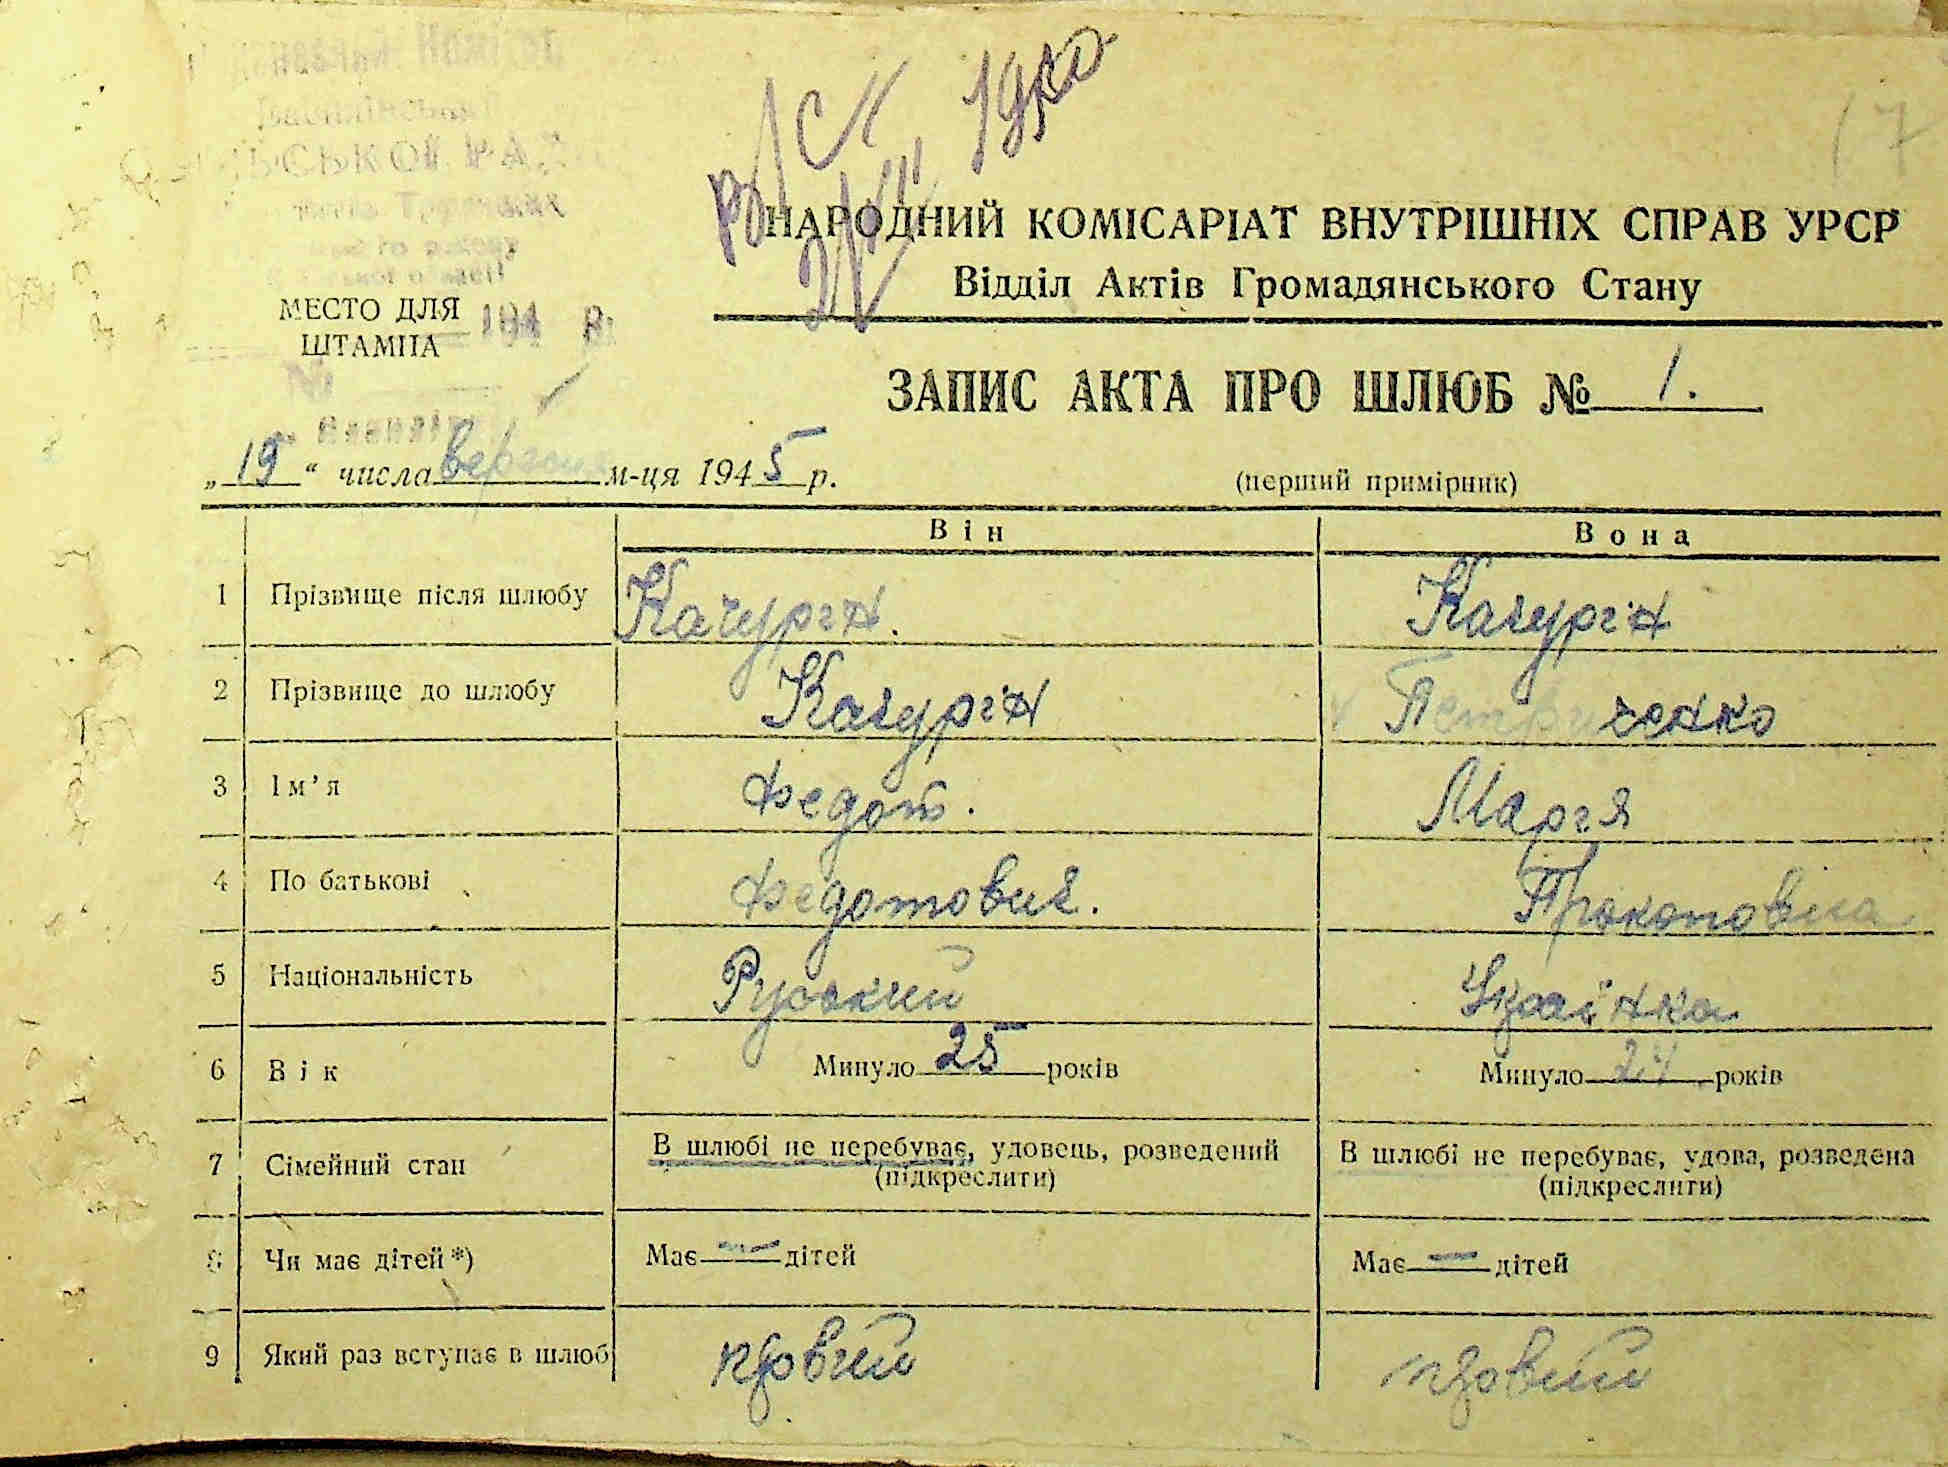 17
НАРОДНИЙ КОМІСАРІАТ ВНУТРІШНІХ СПРАВ УРСР
Відділ Актів Громадянського Стану
МЕСТО ДЛЯ
ШТАМПА
194 р.
№
ЗАПИС АКТА ПРО ШЛЮБ № 1.
„19“ числа вересня м-ця 1945 р.
(перший примірник)
Він Вона
1 Прізвище після шлюбу Качурін. Качурін
2 Прізвище до шлюбу Качурін Петриченко
3 Ім’я Федот. Марія
4 По батькові Федотович. Прокоповна
5 Національність Руський Українка
6 Вік Минуло 25 років Минуло 24 років
7 Сімейний стан В шлюбі не перебуває, удовець, розведений В шлюбі не перебуває, удова, розведена
(підкреслити) (підкреслити)
8 Чи має дітей*) Має — дітей Має — дітей
9 Який раз вступає в шлюб первий первий